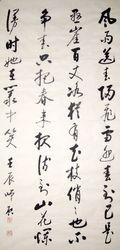 风雨送春归飞雪迎春到已是
悬崖百丈冰犹有花枝俏俏也不
争春只把春来报待到山花烂
漫时她在丛中笑 壬辰